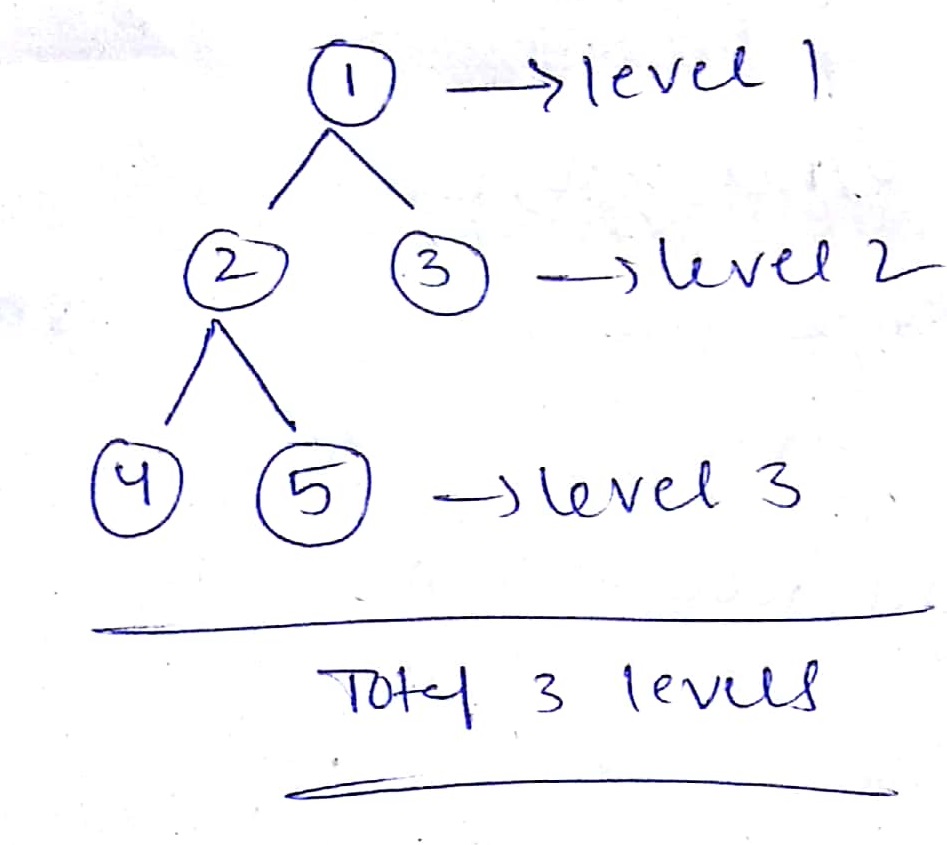 1 → level 1
2 3 → level 2
4 5 → level 3
Total 3 levels